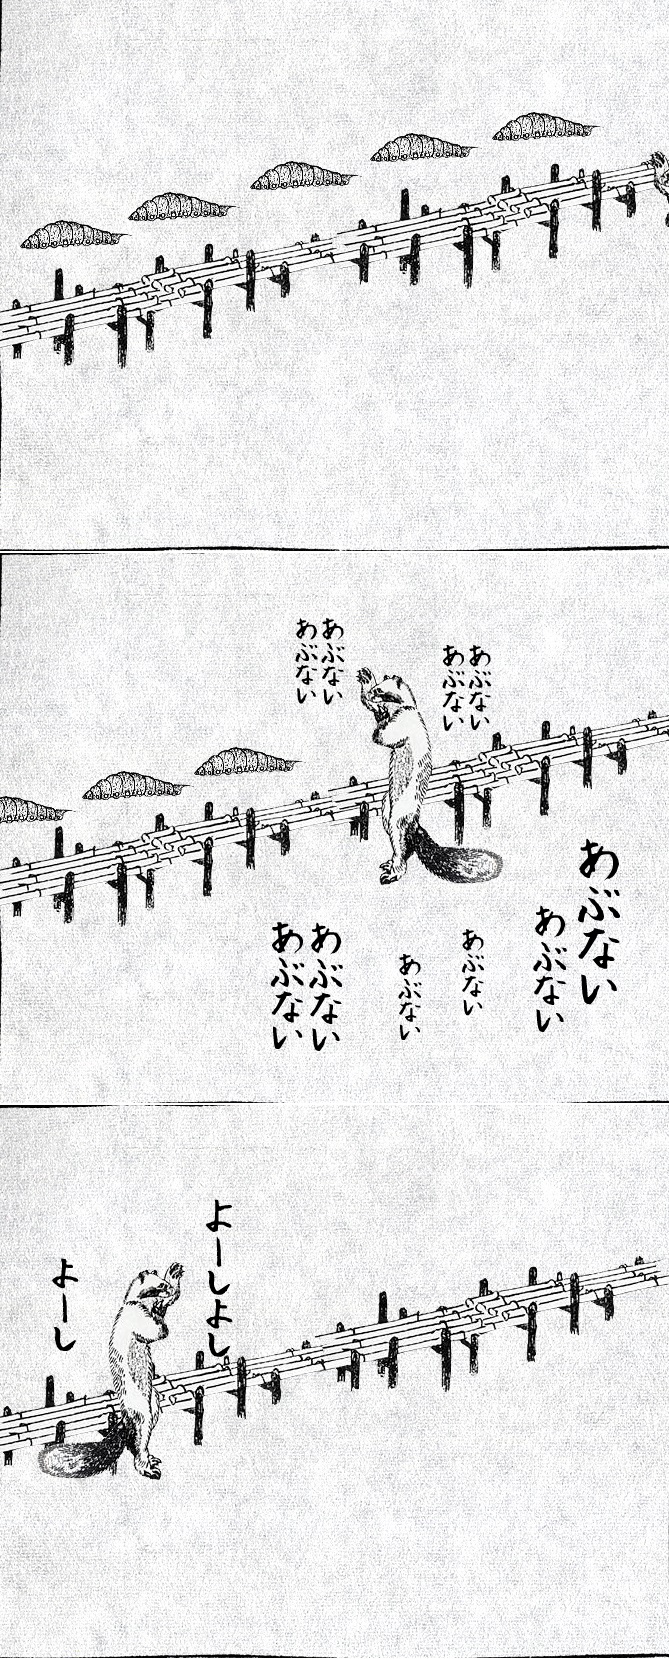 あぶない
あぶない
あぶない
あぶない
あぶない
あぶない
あぶない
あぶない
あぶない
あぶない
よーしよし
よーし